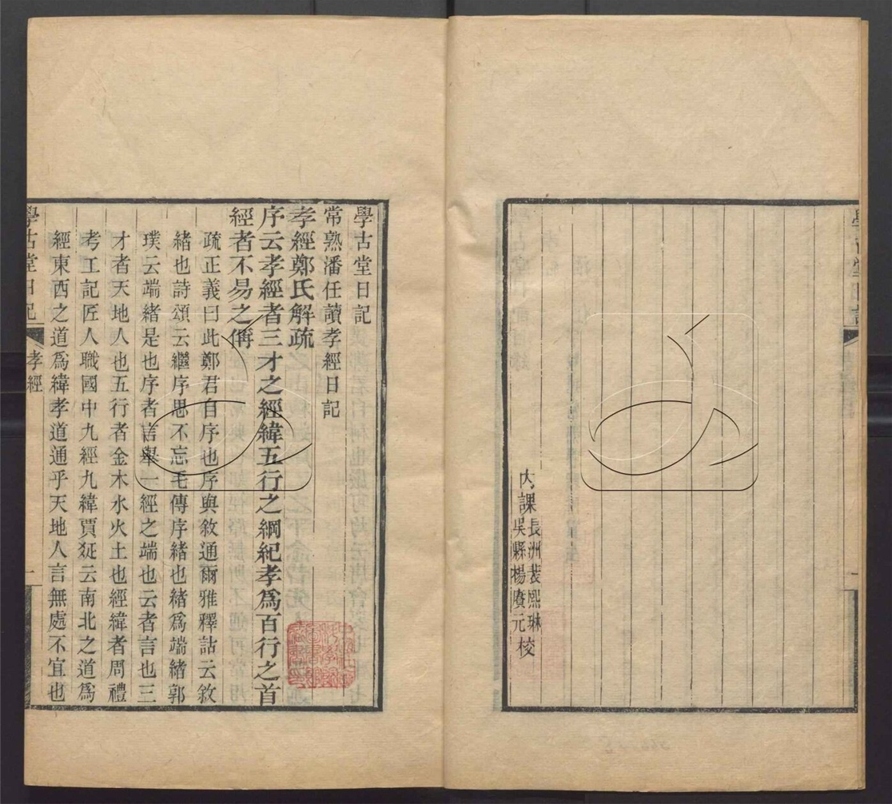 內課
長洲裴熙琳
吳縣楊賡元
校
學古堂日記
常熟潘任讀孝經日記
孝經鄭氏解疏
序云孝經者三才之經緯五行之綱紀孝爲百行之首
經者不易之偁
疏正義曰此鄭君自序也序與敘通爾雅釋詁云敘
緒也詩頌云繼序思不忘毛傳序緒也緒爲端緒郭
璞云端緒是也序者言舉一經之端也云者言也三
才者天地人也五行者金木水火土也經緯者周禮
考工記匠人職國中九經九緯賈疏云南北之道爲
經東西之道爲緯孝道通乎天地人言無處不宜也
學古堂日記
孝經
一